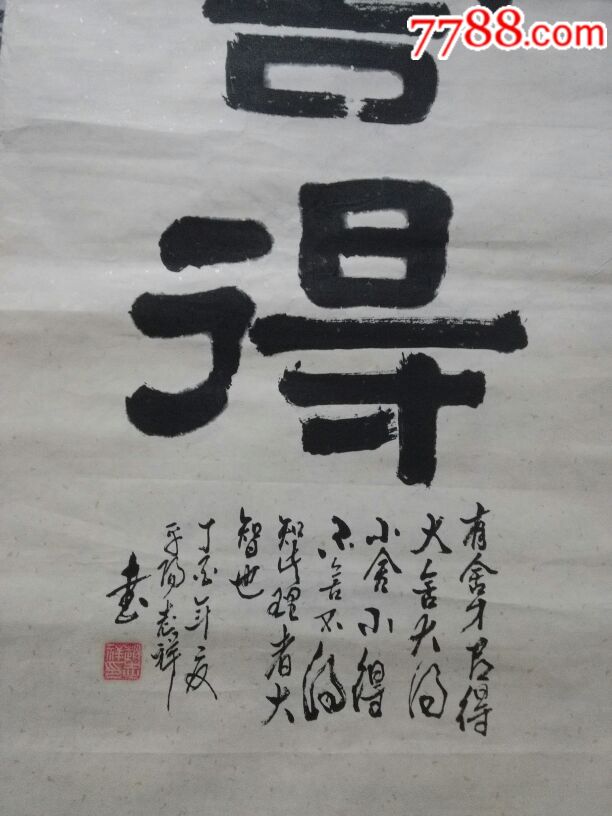 7788.com
舍
得
有舍才有得
大舍大得
小舍小得
不舍不得
知此理者大
智也
丁酉年夏
平阳志祥
书